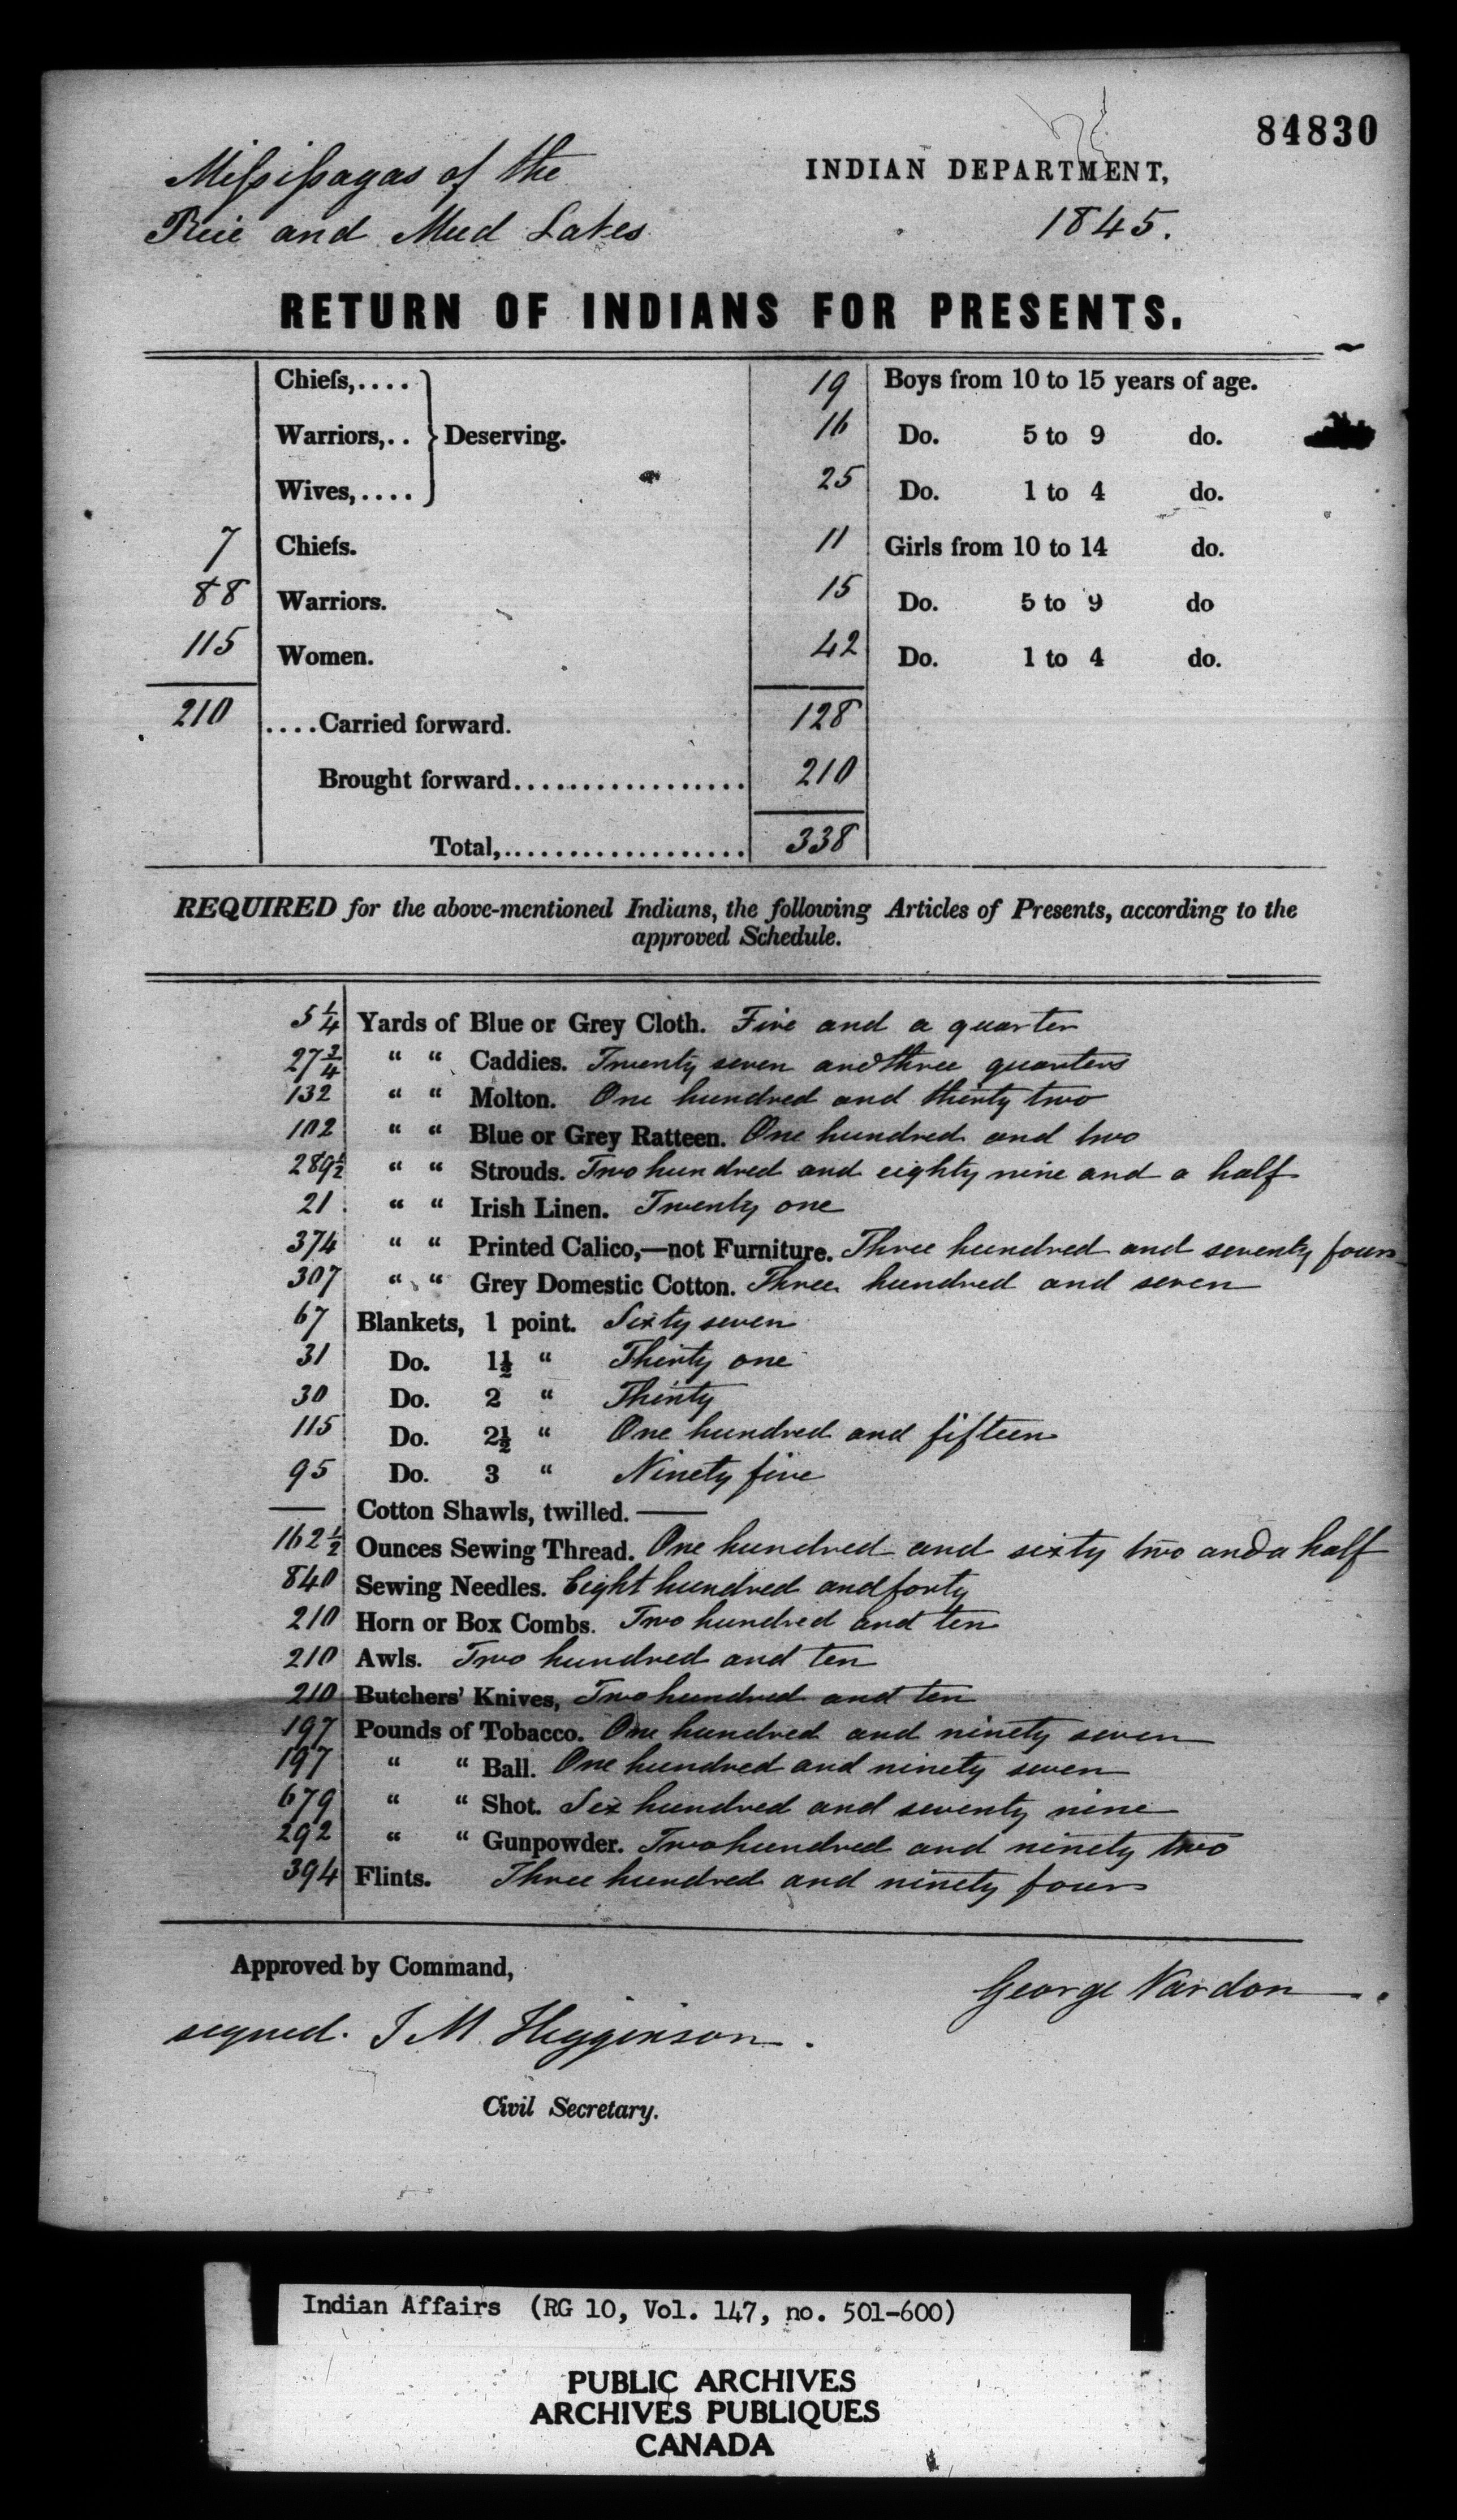 84830
Missisagas of the
Rice and Mud Lakes
INDIAN DEPARTMENT,
1845.
RETURN OF INDIANS FOR PRESENTS.
Chiefs,.... 19 Boys from 10 to 15 years of age.
Warriors,.. } Deserving. 16 Do. 5 to 9 do.
Wives,.... 25 Do. 1 to 4 do.
7 Chiefs. 11 Girls from 10 to 14 do.
88 Warriors. 15 Do. 5 to 9 do
115 Women. 42 Do. 1 to 4 do.
210 ....Carried forward. 128
Brought forward.................. 210
Total,................... 338
REQUIRED for the above-mentioned Indians, the following Articles of Presents, according to the
approved Schedule.
5 1/4 Yards of Blue or Grey Cloth. Five and a quarter
27 3/4 “ “ Caddies. Twenty seven and three quarters
132 “ “ Molton. One hundred and thirty two
102 “ “ Blue or Grey Ratteen. One hundred and two
289 1/2 “ “ Strouds. Two hundred and eighty nine and a half
21 “ “ Irish Linen. Twenty one
374 “ “ Printed Calico,—not Furniture. Three hundred and seventy four
307 “ “ Grey Domestic Cotton. Three hundred and seven
67 Blankets, 1 point. Sixty seven
31 Do. 1½ “ Thirty one
30 Do. 2 “ Thirty
115 Do. 2½ “ One hundred and fifteen
95 Do. 3 “ Ninety five
— Cotton Shawls, twilled. —
162 1/2 Ounces Sewing Thread. One hundred and sixty two and a half
840 Sewing Needles. Eight hundred and forty
210 Horn or Box Combs. Two hundred and ten
210 Awls. Two hundred and ten
210 Butchers' Knives, Two hundred and ten
197 Pounds of Tobacco. One hundred and ninety seven
197 “ “ Ball. One hundred and ninety seven
679 “ “ Shot. Six hundred and seventy nine
292 “ “ Gunpowder. Two hundred and ninety two
394 Flints. Three hundred and ninety four
Approved by Command,
George Vardon.
signed. J M Higginson.
Civil Secretary.
Indian Affairs (RG 10, Vol. 147, no. 501-600)
PUBLIC ARCHIVES
ARCHIVES PUBLIQUES
CANADA